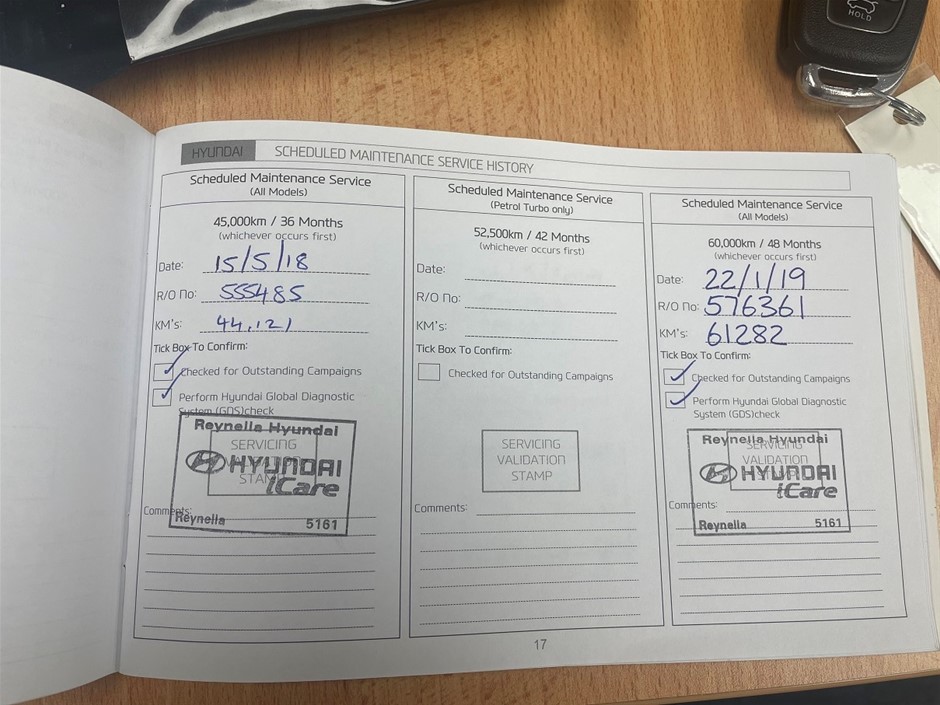 HOLD
HYUNDAI SCHEDULED MAINTENANCE SERVICE HISTORY
Scheduled Maintenance Service
(All Models)
45,000km / 36 Months
(whichever occurs first)
Date: 15/5/18
R/O No: 555485
KM's: 44,121
Tick Box To Confirm:
Checked for Outstanding Campaigns
Perform Hyundai Global Diagnostic
System (GDS)check
Reynella Hyundai
SERVICING
VALIDATION
STAMP
HYUNDAI
iCare
Comments:
Reynella 5161
Scheduled Maintenance Service
(Petrol Turbo only)
52,500km / 42 Months
(whichever occurs first)
Date:
R/O No:
KM's:
Tick Box To Confirm:
Checked for Outstanding Campaigns
SERVICING
VALIDATION
STAMP
Comments:
Scheduled Maintenance Service
(All Models)
60,000km / 48 Months
(whichever occurs first)
Date: 22/1/19
R/O No: 576361
KM's: 61282
Tick Box To Confirm:
Checked for Outstanding Campaigns
Perform Hyundai Global Diagnostic
System (GDS)check
Reynella Hyundai
SERVICING
VALIDATION
STAMP
HYUNDAI
iCare
Comments:
Reynella 5161
17